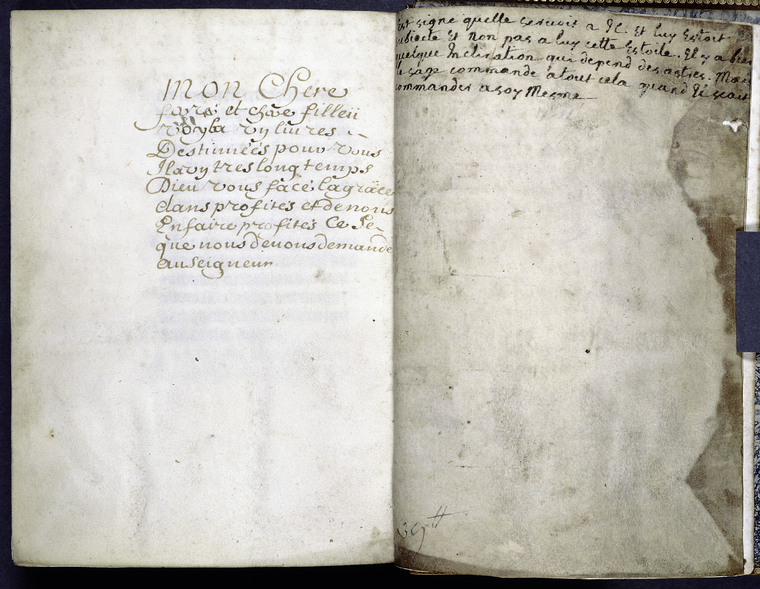 mon Chere
et chere filleü
voyla vn liures
Destinneés pour vous
Il a vy tres long temps
Dieu vous facé la grace
dans profités et de nous
En faire profités Ce Se
que nous deuons demande
au seigneur
est signe quelle seruoit a IC. Et luy Estoit
subiecte Et non pas a luy cette Estoile. Il y a bien
quelque Inclination qui depend des astres. Mais
le sage commande a tout cela quand Il scait
commander a soy Mesme